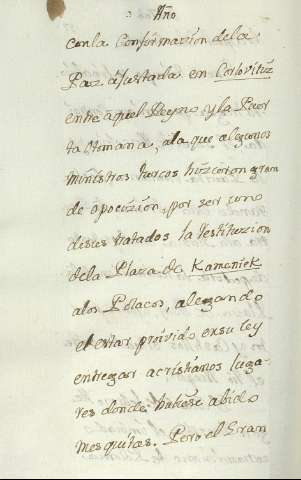 Año
con la Conformazion de la
Paz ajustada en Corlovitz
entre aquel Reyno y la Puer
ta Otomana, a la que algunos
ministros turcos hizieron gran
de opocizion, por ser uno
de sus tratados la restituzion
de la Plaza de Kameniek
a los Polacos, alegando
el estar proivido en su ley
entregar a cristianos luga-
res donde hubiese abido
mesquitas. Pero el Gran